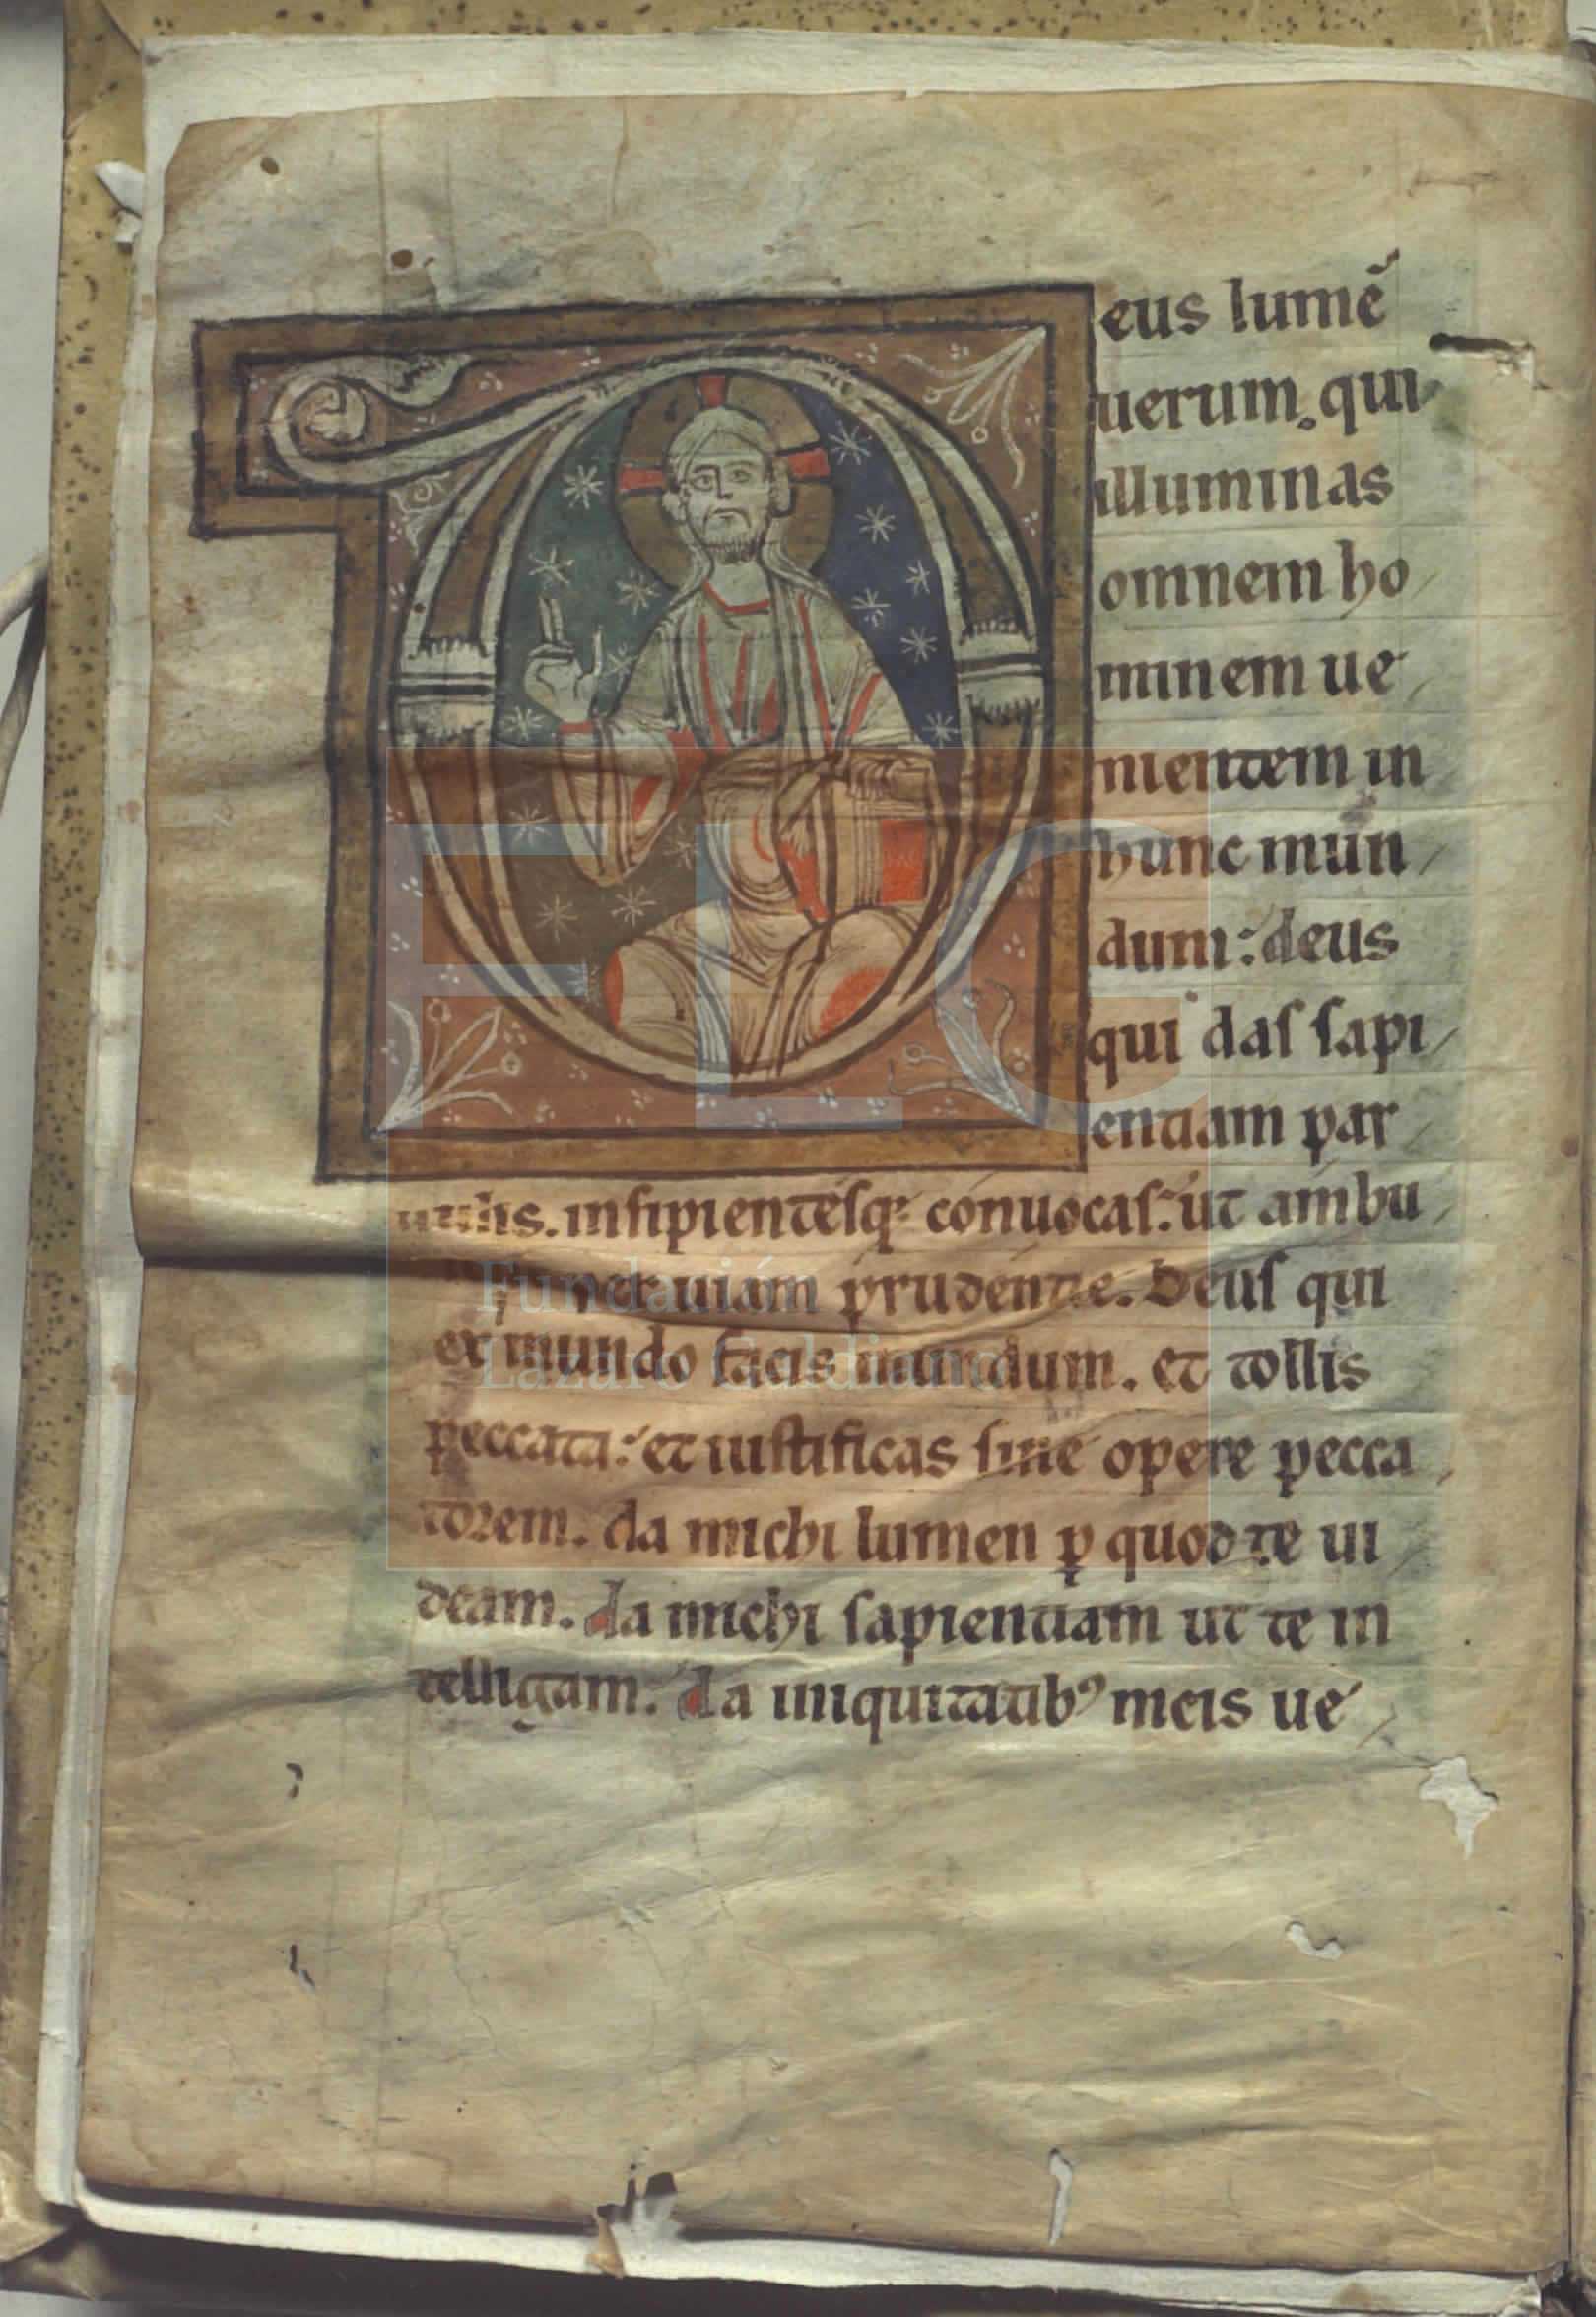 Deus lumē
uerum. qui
illuminas
omnem ho
minem ue
nientem in
hunc mun
dum: deus
qui das sapi
entiam par
uulis. insipientesq: conuocas: ut ambu
per uiam prudentie. Deus qui
ex mundo facis mundum. et tollis
peccata: et iustificas sine opere pecca
torem. da michi lumen ꝑ quod te ui
deam. da michi sapientiam ut te in
telligam. da iniquitatibꝰ meis ue
FLG
Fundación
Lázaro Galdiano